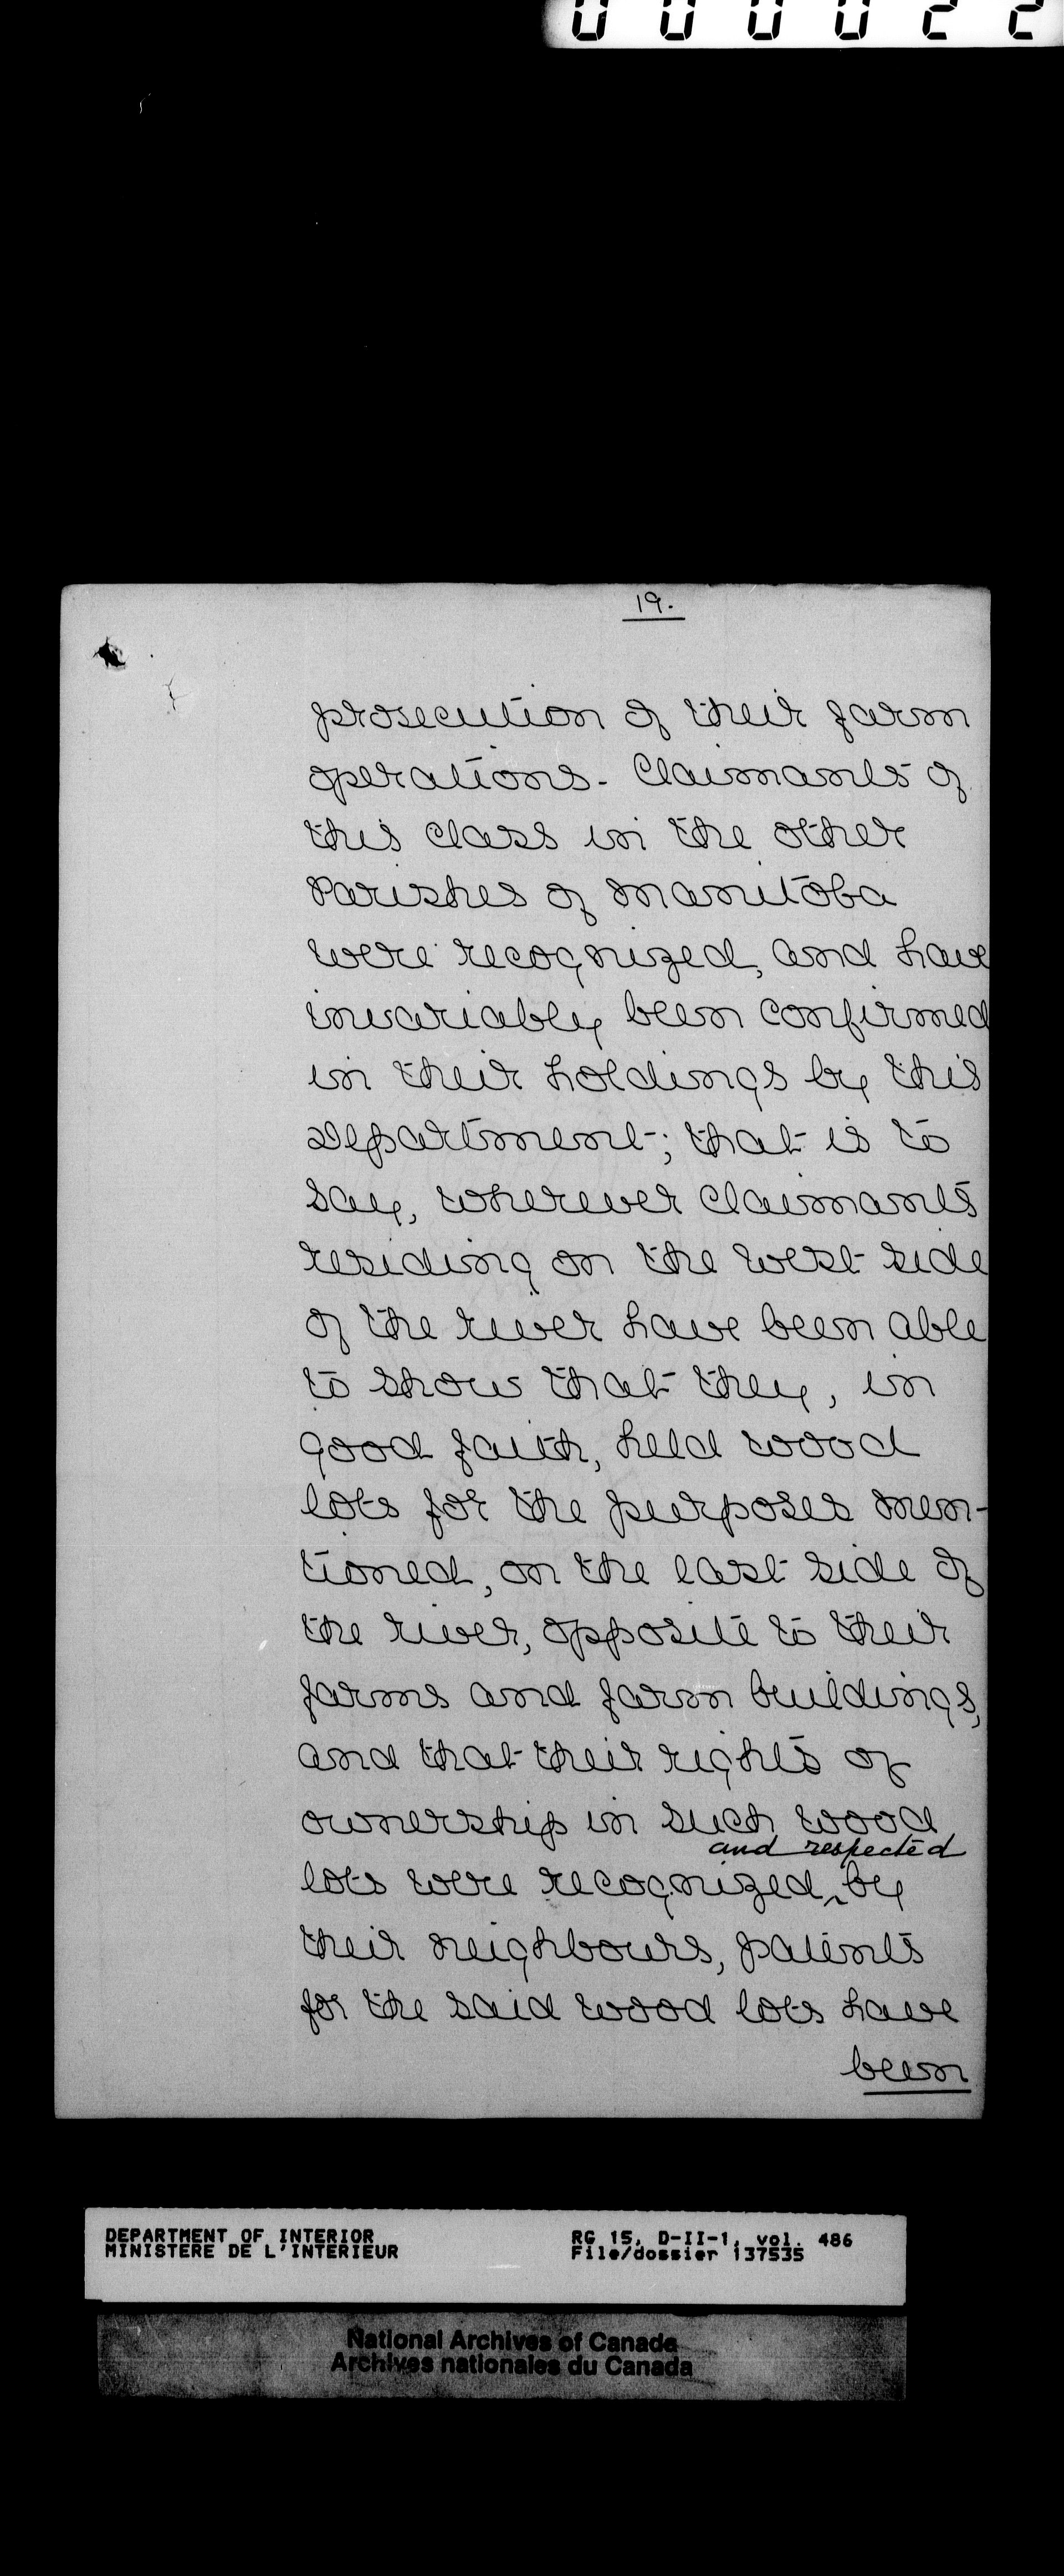 000022
19.
prosecution of their farm
operations. Claimants of
this class in the other
Parishes of Manitoba
were recognized, and have
invariably been confirmed
in their holdings by this
Department; that is to
say, wherever claimants
residing on the west side
of the river have been able
to show that they, in
good faith, held wood
lots for the purposes men-
tioned, on the east side of
the river, opposite to their
farms and farm buildings,
and that their rights of
ownership in such wood
and respected
lots were recognized ‸ by
their neighbours, patents
for the said wood lots have
been
DEPARTMENT OF INTERIOR
MINISTERE DE L'INTERIEUR
RG 15, D-II-1, vol. 486
File/dossier 137535
National Archives of Canada
Archives nationales du Canada